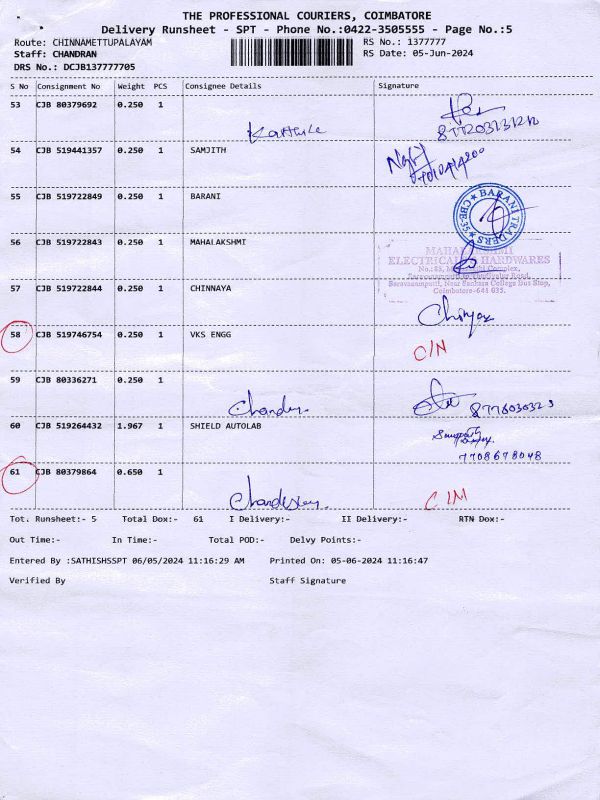 THE PROFESSIONAL COURIERS, COIMBATORE
Delivery Runsheet - SPT - Phone No.:0422-3505555 - Page No.:5
Route: CHINNAMETTUPALAYAM RS No.: 1377777
Staff: CHANDRAN RS Date: 05-Jun-2024
DRS No.: DCJB137777705
S No Consignment No Weight PCS Consignee Details Signature
53 CJB 80379692 0.250 1
54 CJB 519441357 0.250 1 SAMJITH
55 CJB 519722849 0.250 1 BARANI
BARANI TRADERS
CBE-35
56 CJB 519722843 0.250 1 MAHALAKSHMI
ELECTRICAL HARDWARES
Coimbatore-641 035.
57 CJB 519722844 0.250 1 CHINNAYA
58 CJB 519746754 0.250 1 VKS ENGG
59 CJB 80336271 0.250 1
60 CJB 519264432 1.967 1 SHIELD AUTOLAB
7708678048
61 CJB 80379864 0.650 1
Tot. Runsheet:- 5 Total Dox:- 61 I Delivery:- II Delivery:- RTN Dox:-
Out Time:- In Time:- Total POD:- Delvy Points:-
Entered By :SATHISHSSPT 06/05/2024 11:16:29 AM Printed On: 05-06-2024 11:16:47
Verified By Staff Signature